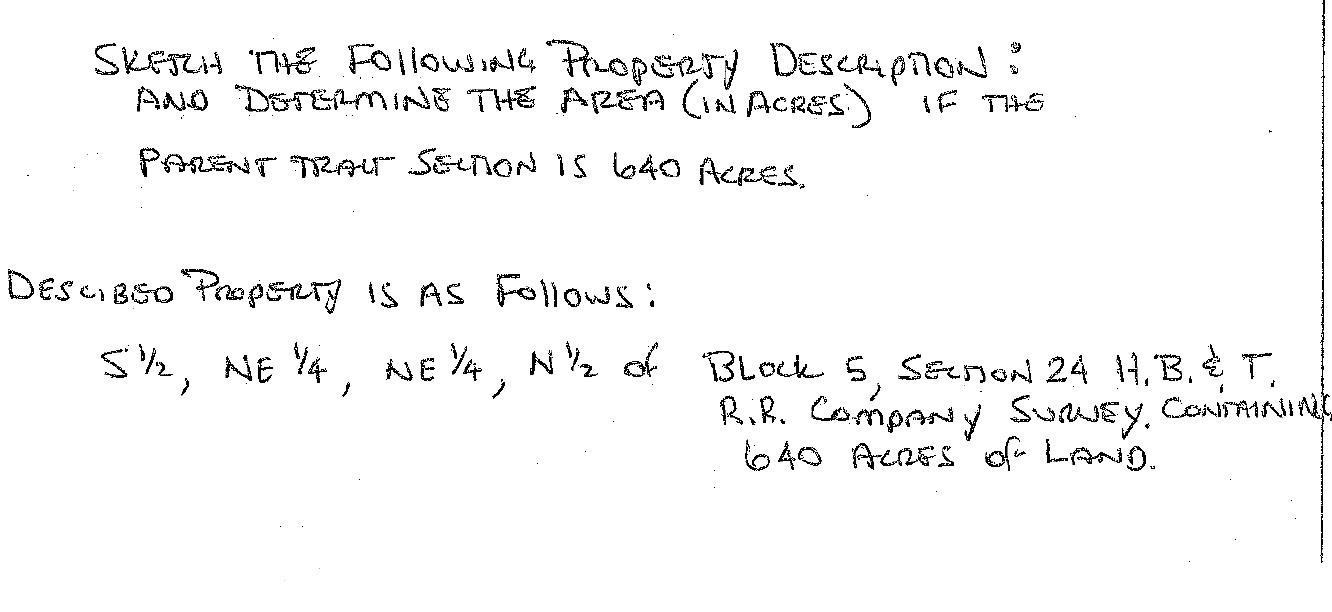 SKETCH THE FOLLOWING PROPERTY DESCRIPTION:
AND DETERMINE THE AREA (IN ACRES) IF THE
PARENT TRACT SECTION IS 640 ACRES.
DESCIBED PROPERTY IS AS FOLLOWS:
S 1/2, NE 1/4, NE 1/4, N 1/2 of BLOCK 5, SECTION 24 H.B. & T.
R.R. COMPANY SURVEY. CONTAINING
640 ACRES of LAND.